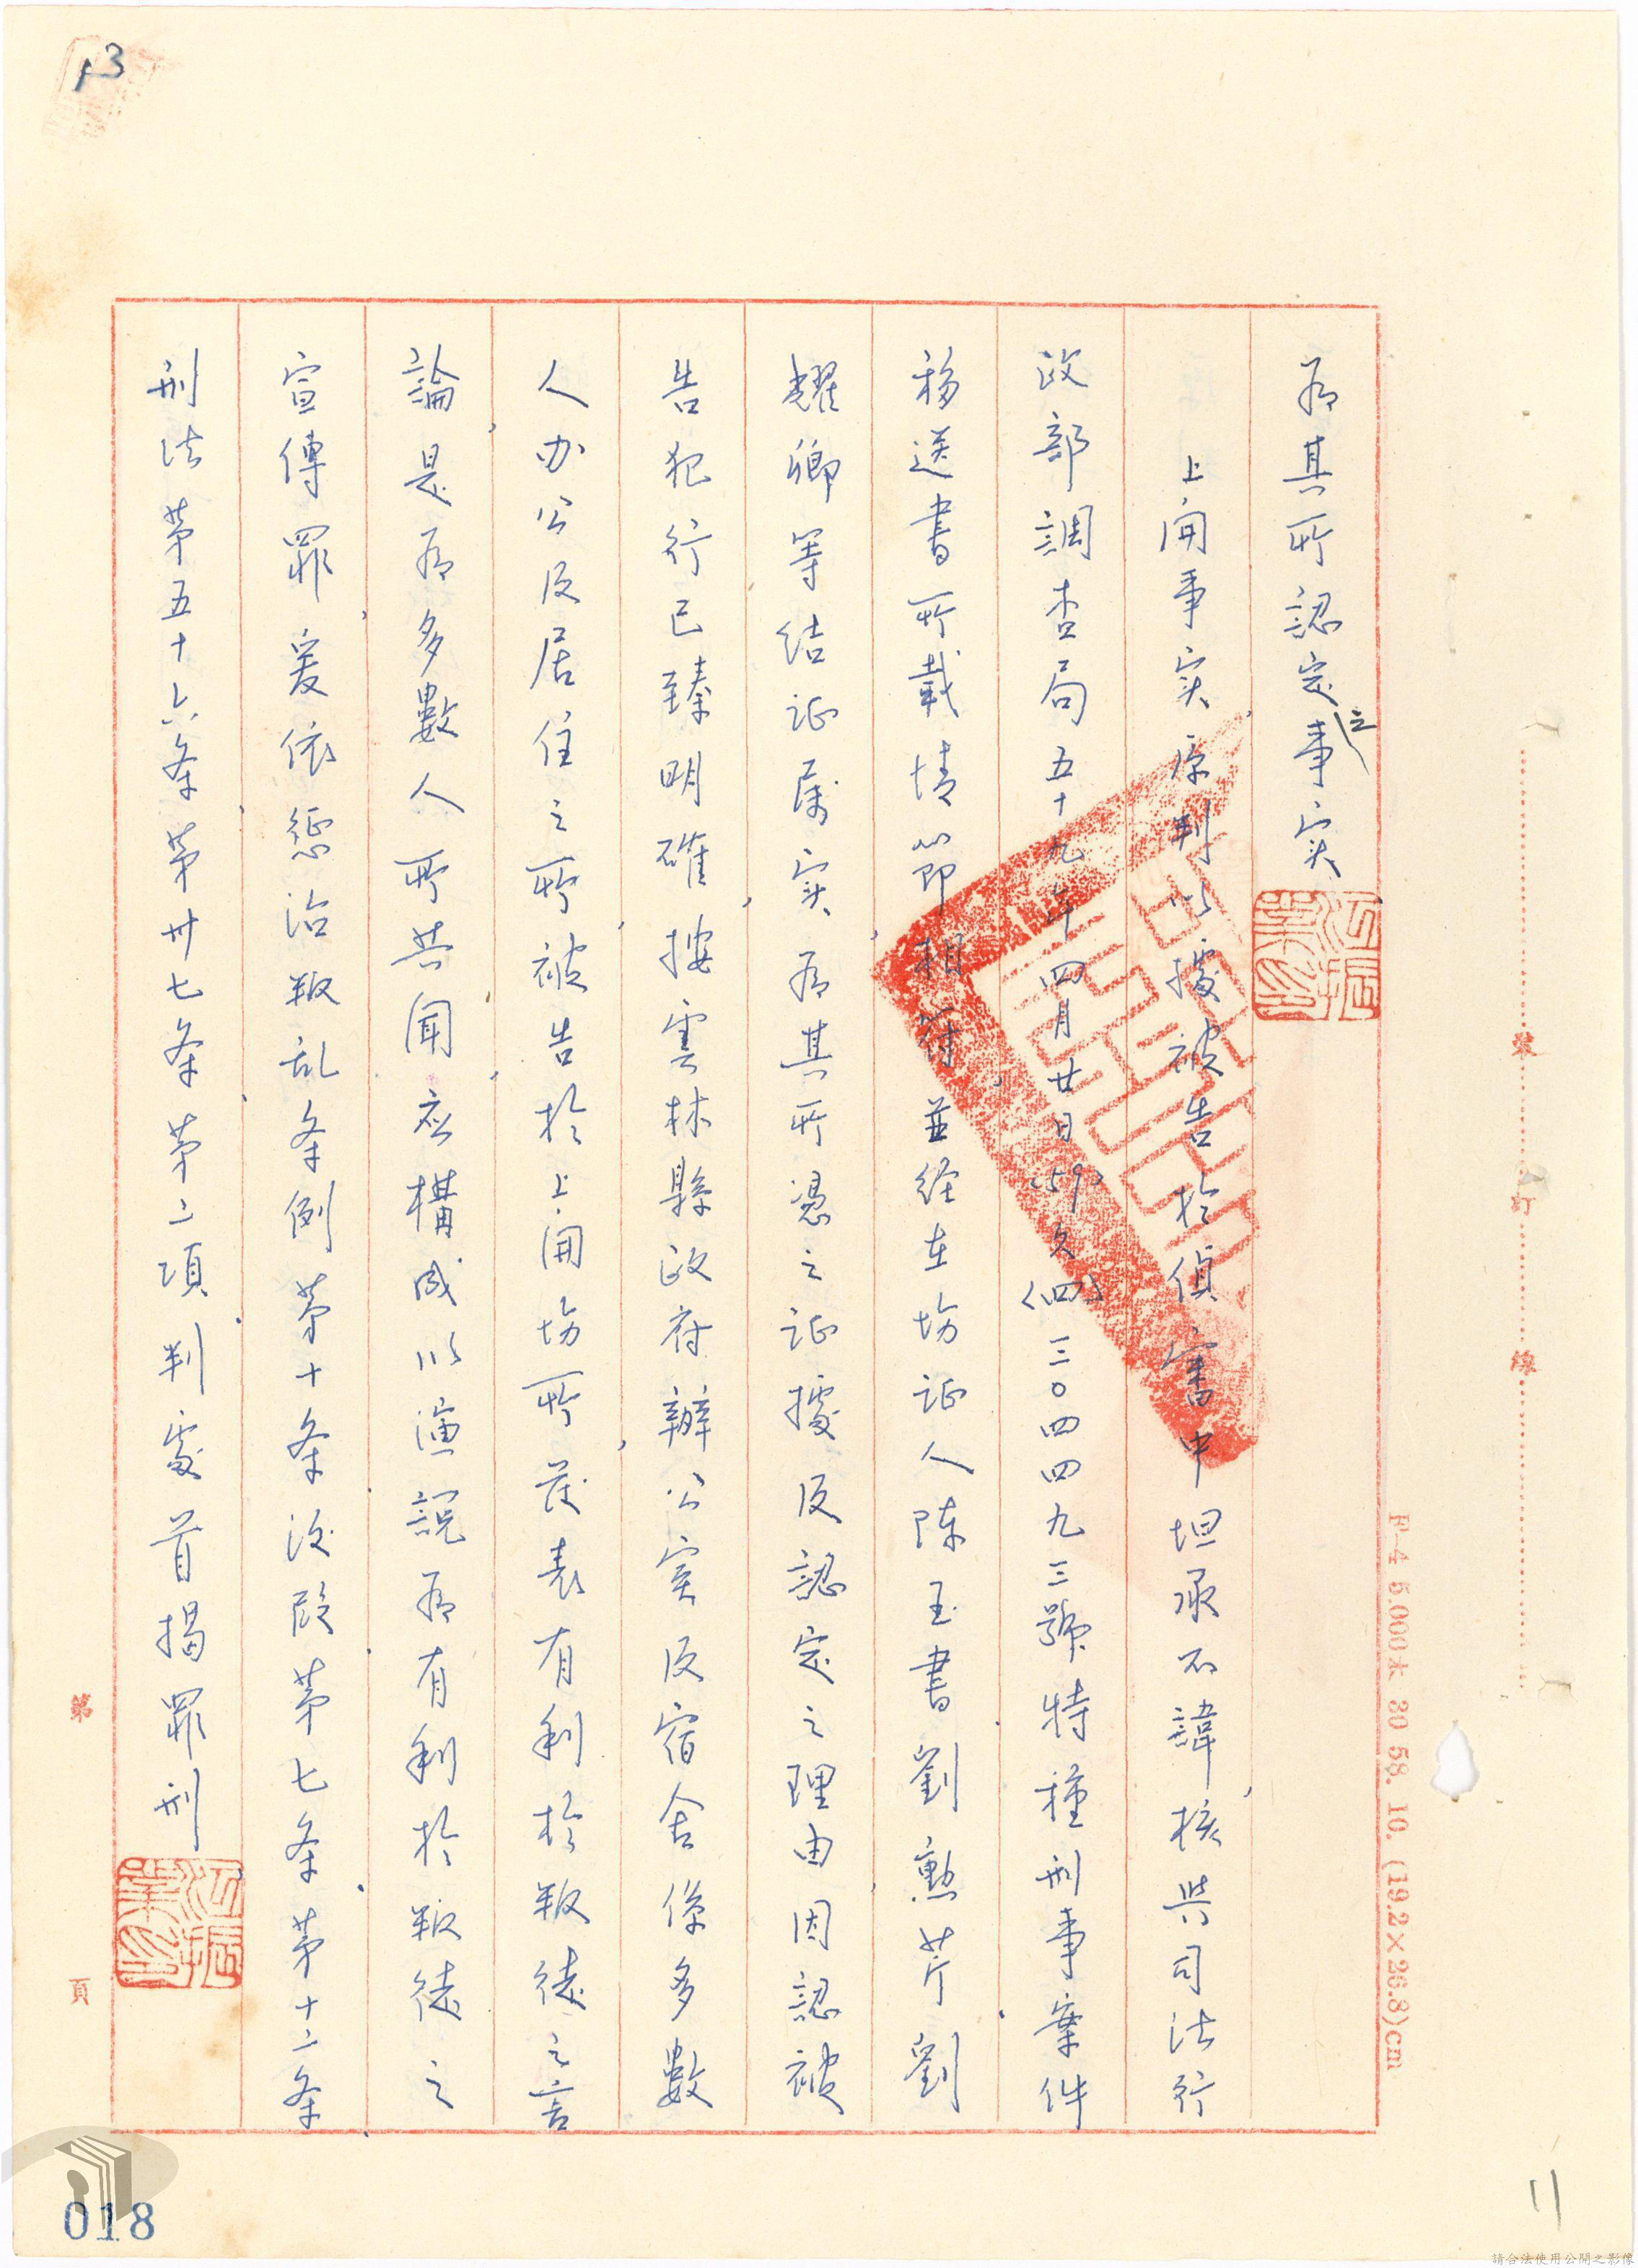 13
為其所認定之事实
上開事实原判以據被告於偵審中坦承不諱，核與司法行
政部調查局五十九年四月廿日(59)久(四)三〇四四九三號特種刑事案件
移送書所載情節相符，並經在場证人陈玉書、劉勳芹、劉
耀卿等结证属实，為其所憑之证據及認定之理由，因認被
告犯行已臻明確，按雲林縣政府辦公室及宿舍係多數
人办公及居住之所，被告於上開場所，發表有利於叛徒之言
論，是為多數人所共聞，應構成以演說為有利於叛徒之
宣傳罪，爰依懲治叛乱条例第十条後段、第七条、第十二条、
刑法第五十六条、第卅七条第二項，判處首揭罪刑
裝
訂
線
F-4 5.000本 80 58. 10. (19.2×26.8)cm
第 頁
018
11
請合法使用公開之影像